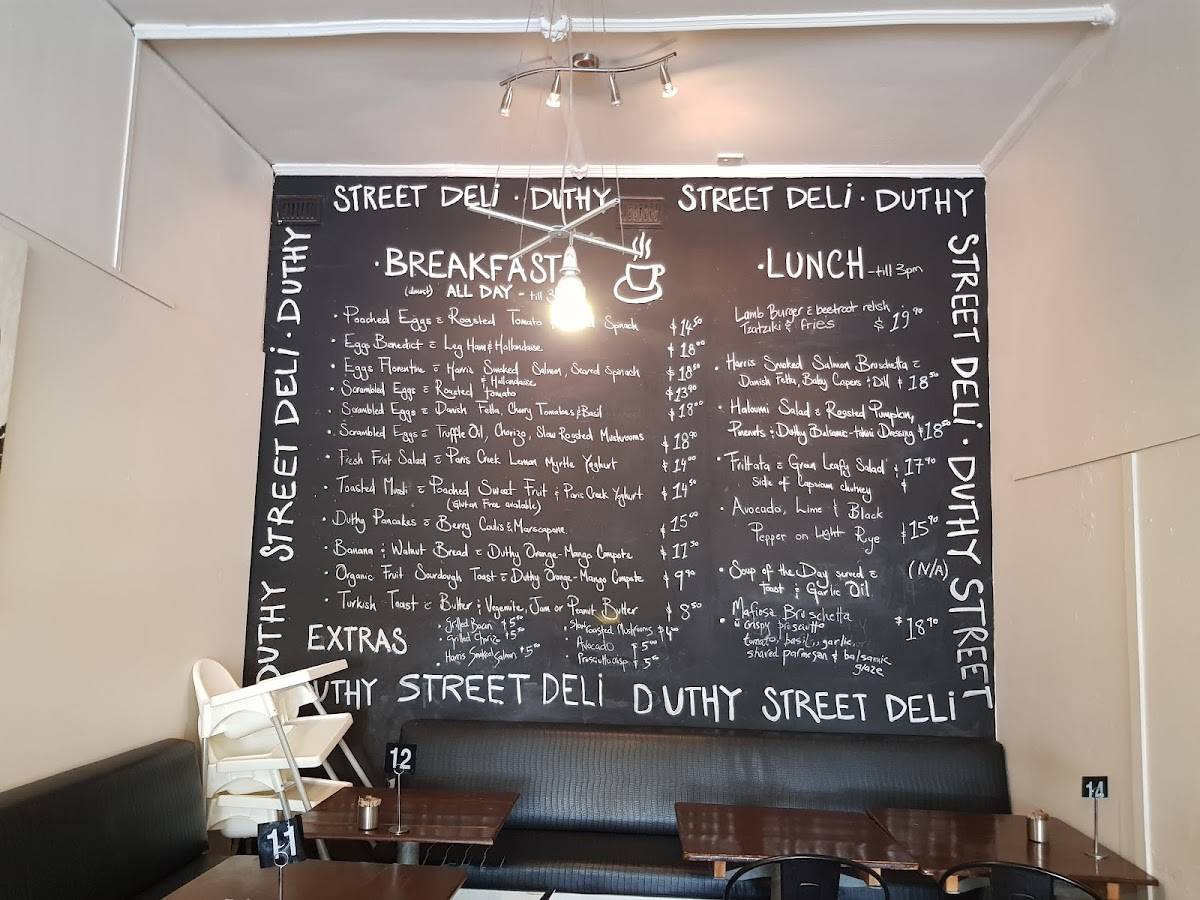 STREET DELi · DUTHY STREET DELi · DUTHY
DUTHY STREET DELi · DUTHY
· BREAKFAST
(almost) ALL DAY - till
· Poached Eggs c Roasted Tomato Spinach $14.50
· Eggs Benedict c Leg Ham & Hollandaise $18.00
· Eggs Florentine c Harris Smoked Salmon, Seared Spinach $18.50
& Hollandaise
· Scrambled Eggs c Roasted Tomato $13.90
· Scrambled Eggs c Danish Fetta, Cherry Tomatoes & Basil $18.00
· Scrambled Eggs c Truffle Oil, Chorizo, Slow Roasted Mushrooms $18.90
· Fresh Fruit Salad c Paris Creek Lemon Myrtle Yoghurt $14.00
· Toasted Musli c Poached Sweet Fruit & Paris Creek Yoghurt $14.50
(Gluten Free available)
· Duthy Pancakes c Berry Coulis & Marscapone. $15.00
· Banana & Walnut Bread c Duthy Orange-Mango Compote $11.50
· Organic Fruit Sourdough Toast c Duthy Orange-Mango Compote $9.90
· Turkish Toast c Butter & Vegemite, Jam or Peanut Butter $8.50
EXTRAS
· Grilled Bacon $5.50
· Grilled Chorizo $5.50
· Harris Smoked Salmon $5.50
· Slow roasted Mushrooms $4.00
Avocado $5.00
· Prosciutto crisp $5.50
· LUNCH - till 3pm
Lamb Burger c beetroot relish
Tzatziki & fries $19.90
· Harris Smoked Salmon Bruschetta c
Danish Fetta, Baby Capers & Dill $18.50
· Haloumi Salad c Roasted Pumpkin,
Pinenuts & Duthy Balsamic-tahini Dressing $18.50
· Frittata c Green Leafy Salad $17.90
side of capsicum chutney $
· Avocado, Lime & Black
Pepper on Light Rye $15.90
· Soup of the Day served c (N/A)
toast & Garlic Oil
· Mafiosa Bruschetta
c crispy prosciutto $18.90
tomato, basil, garlic,
shaved parmesan & balsamic
glaze
STREET DELi · DUTHY STREET
DUTHY STREET DELi DUTHY STREET DELi
12
14
11